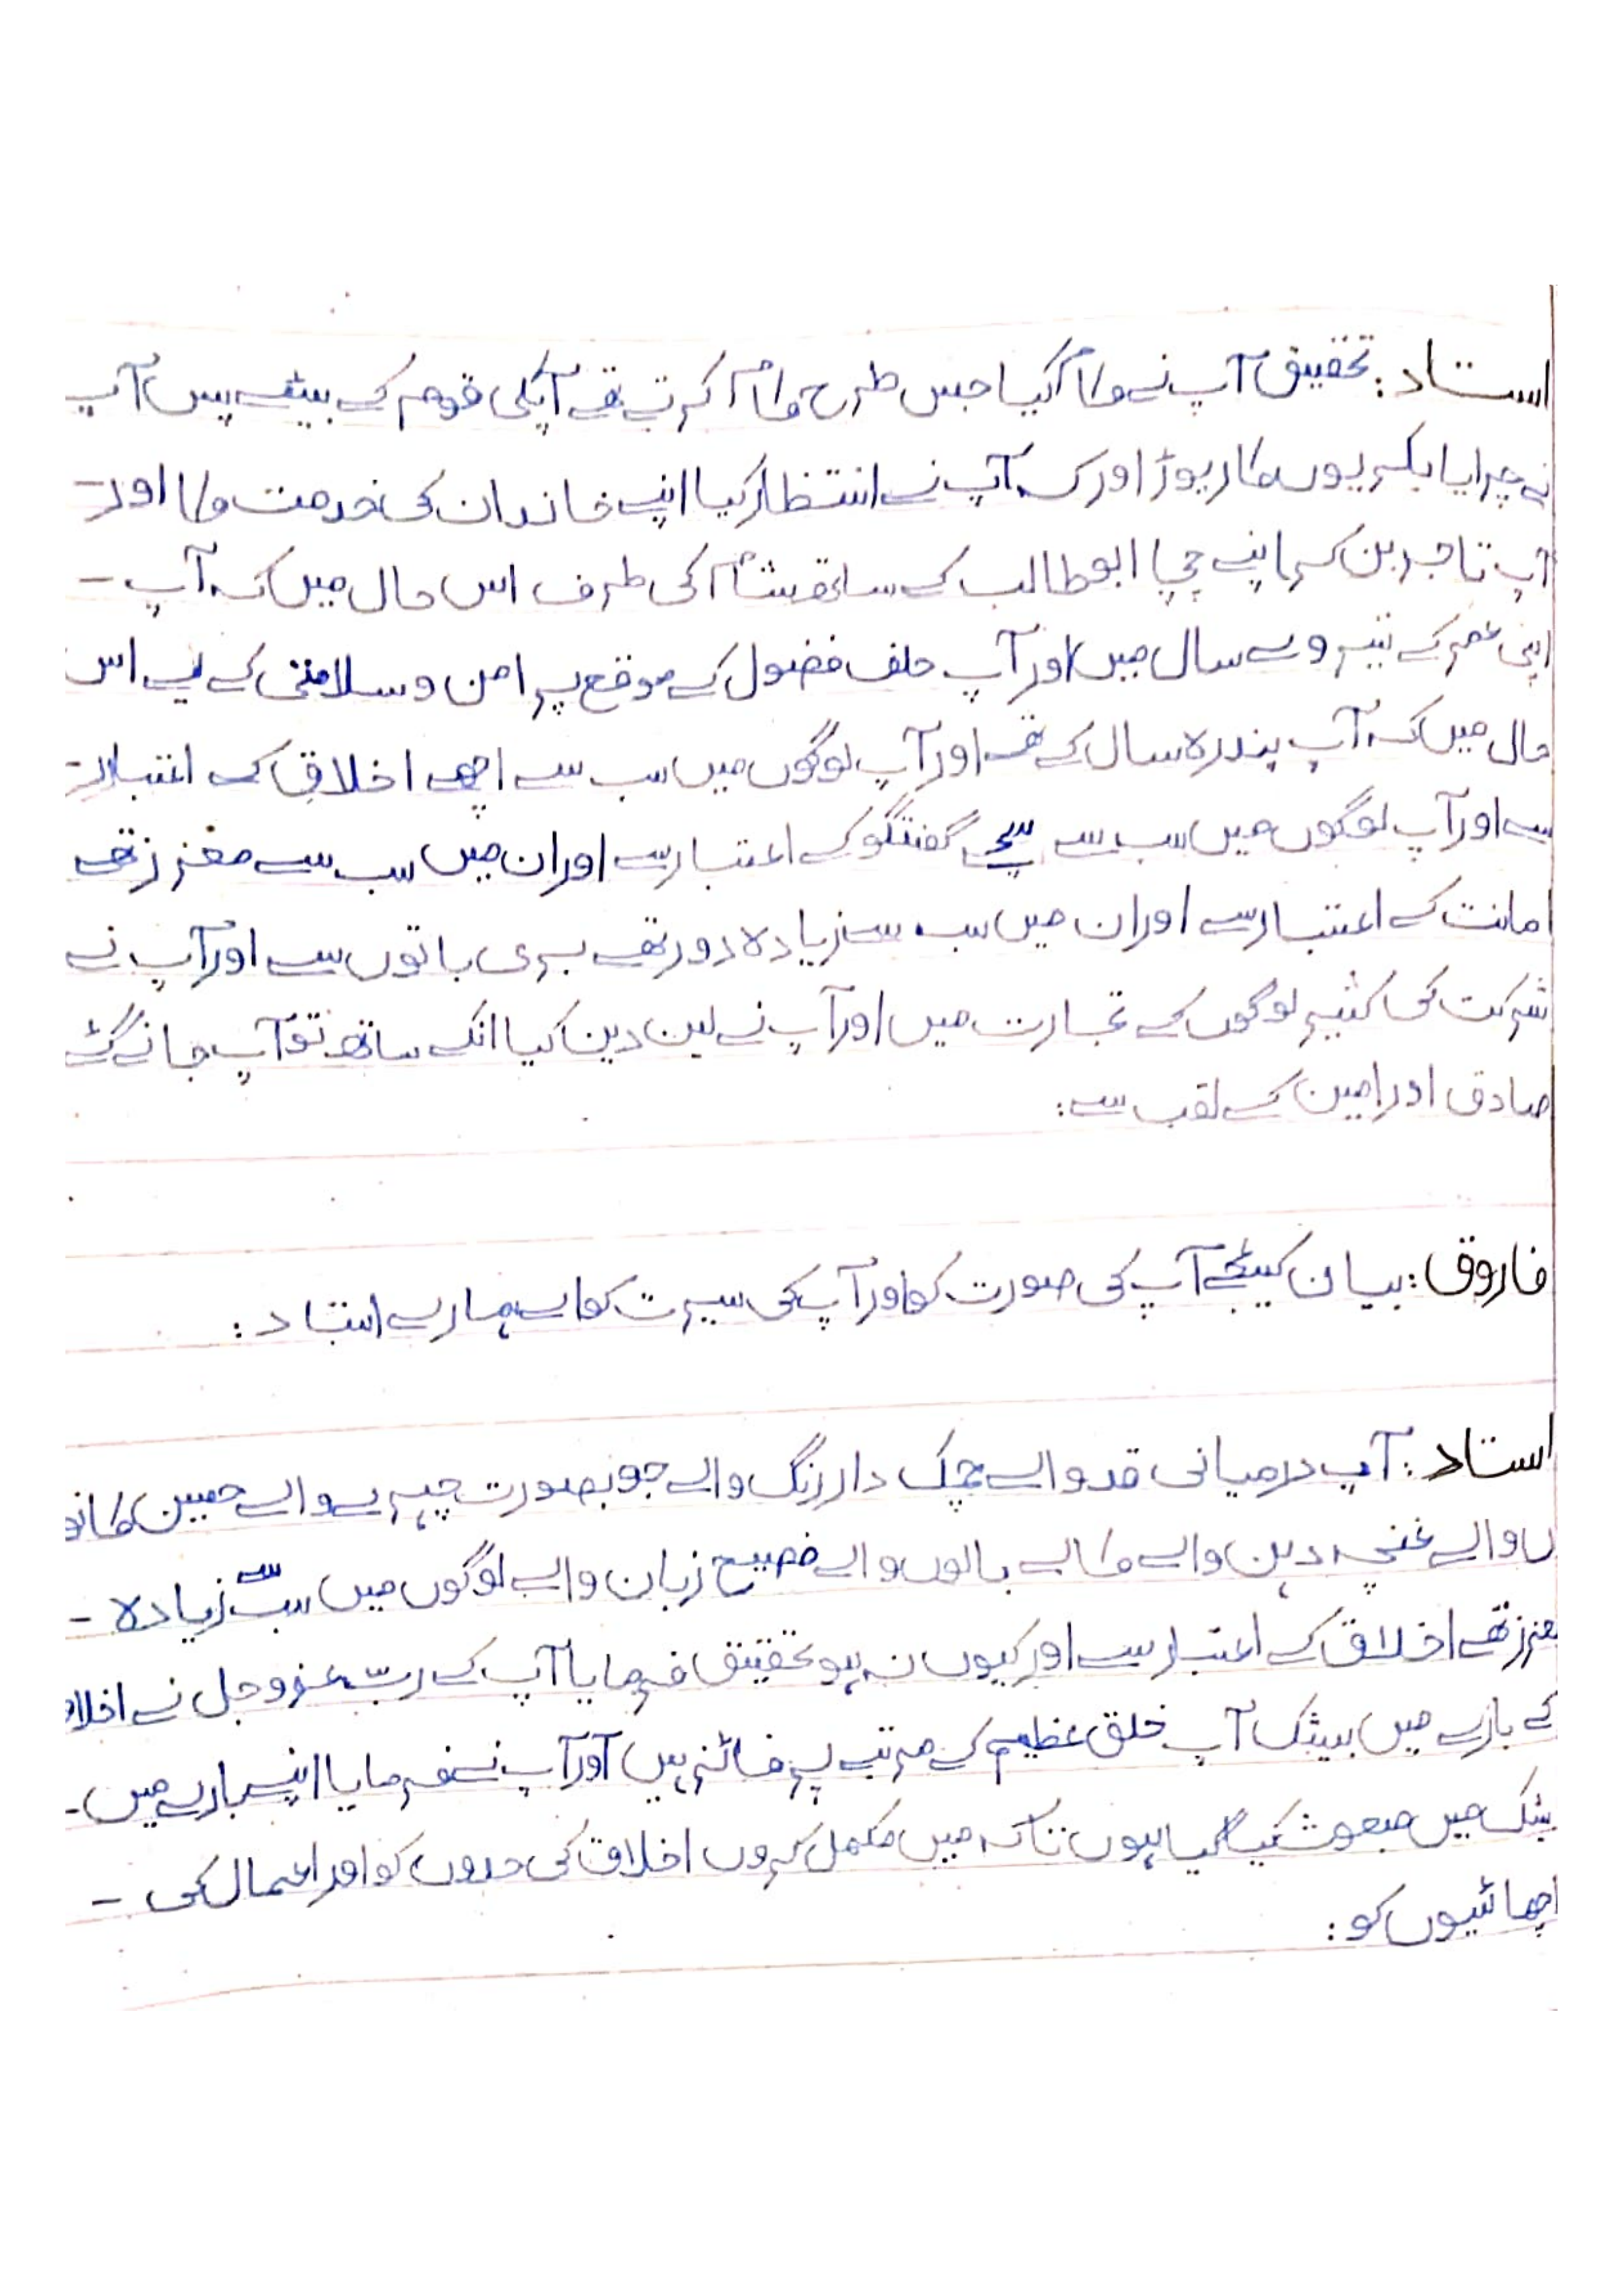 استاد: تحقیق آپ نے کام کیا جس طرح کام کرتے تھے آپکی قوم کے بیٹے پس آپ
نے چرایا بکریوں کا ریوڑ اور کہ آپ نے انتظار کیا اپنے خاندان کی خدمت کا اور
آپ تاجر بن کر اپنے چچا ابو طالب کے ساتھ شام کی طرف اس حال میں کہ آپ -
اپنی عمر کے تیرویے سال میں اور آپ حلف فضول کے موقع پر امن و سلامتی کے لیے اس
حال میں کہ آپ پندرہ سال کے تھے اور آپ لوگوں میں سب سے اچھے اخلاق کے اعتبار
سے اور آپ لوگوں میں سب سے سچے گفتگو کے اعتبار سے اور ان میں سب سے معزز تھے
امانت کے اعتبار سے اور ان میں سب سے زیادہ دور تھے بری باتوں سے اور آپ نے
شرکت کی کثیر لوگوں کے تجارت میں اور آپ نے لین دین کیا انکے ساتھ تو آپ جانے گئے
صادق اور امین کے لقب سے:
فاروق: بیان کیجئے آپ کی صورت کو اور آپ کی سیرت کو اے ہمارے استاد:
استاد: آپ درمیانی قد والے چمک دار رنگ والے خوبصورت چہرے والے حسین کانو
ں والے غنچہ دہن والے کالے بالوں والے فصیح زبان والے لوگوں میں سب سے زیادہ -
معزز تھے اخلاق کے اعتبار سے اور کیوں نہ ہو تحقیق فرمایا آپ کے ربّ عزوجل نے اخلاق
کے بارے میں بیشک آپ خلق عظیم کے مرتبے پر فائز ہیں اور آپ نے فرمایا اپنے بارے میں -
بیشک میں مبعوث کیا گیا ہوں تاکہ میں مکمل کروں اخلاق کی حدوں کو اور اعمال کی -
اچھائیوں کو: